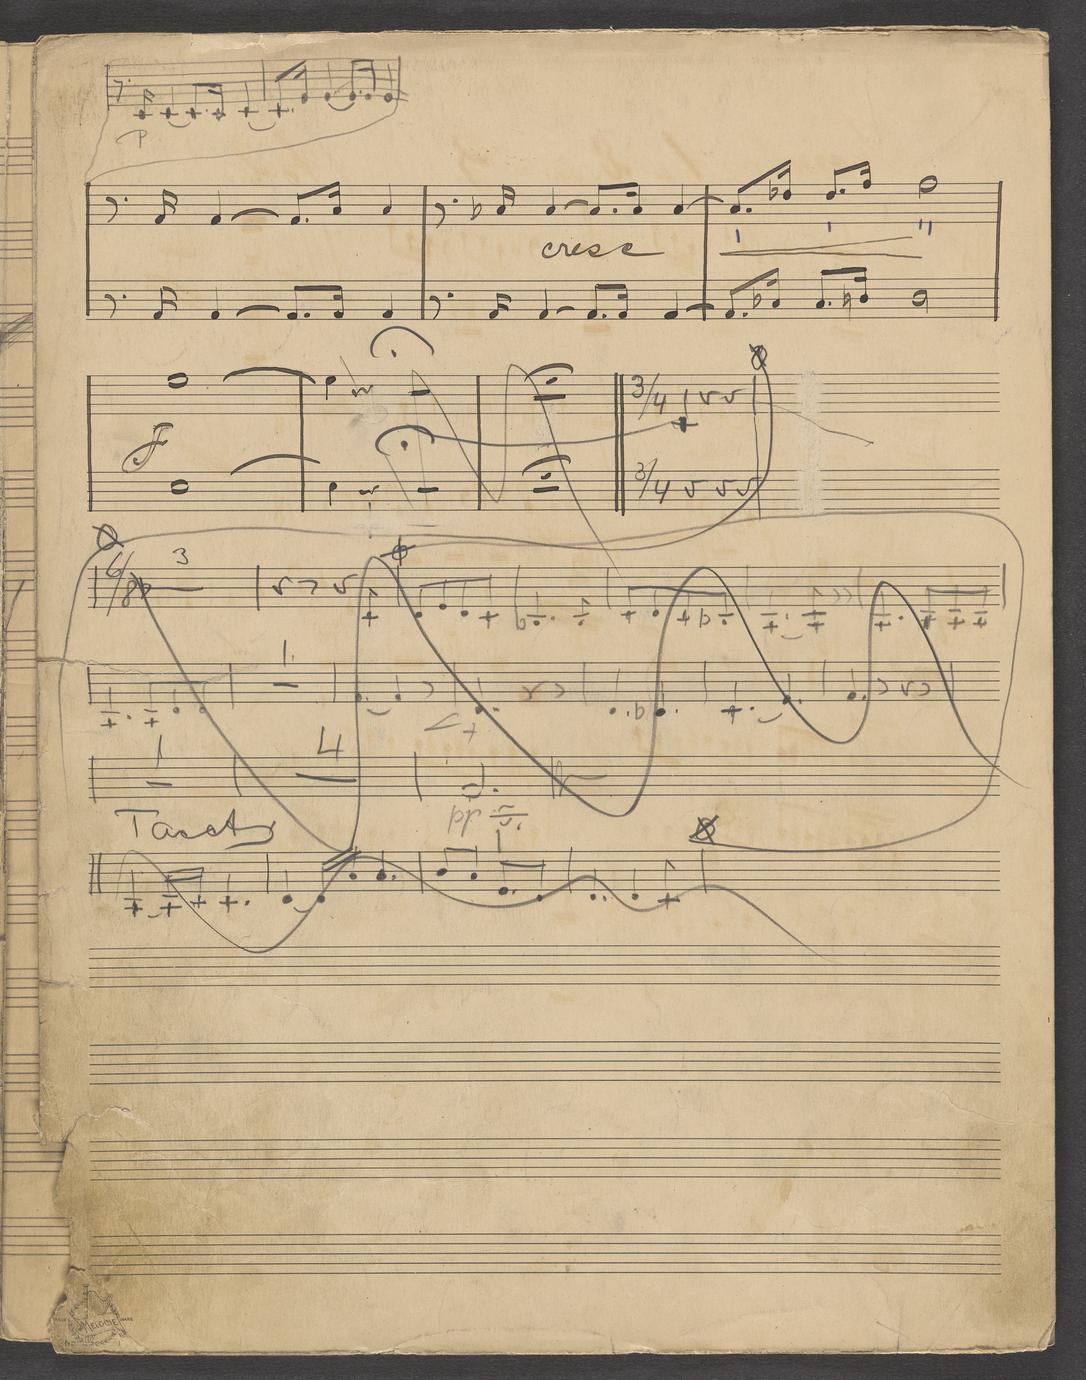 P
cresc
f
3/4
3/4
6/8 3
1
1 4
pp
Tacet
MELODIE